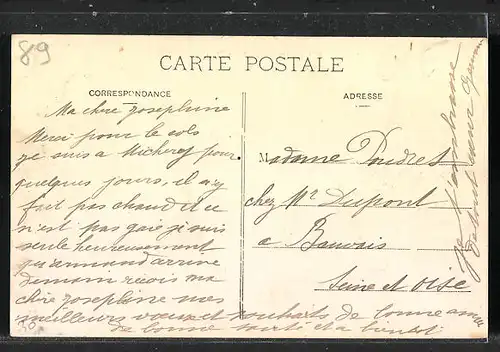 89
CARTE POSTALE
CORRESPONDANCE
ADRESSE
Ma chère Josephine
Merci pour le colis
je suis a pour
quelques jours, il n'y
fait pas chaud et ce
n'est pas gaie je suis
seule heureusement
qu'armand arrive
demain reçois ma
chère Josephine mes
meilleurs vœux et souhaits de bonne année
de bonne santé et a bientot
Madame Poudret
chez Mr Dupont
a Bauvais
Seine et Oise
Je t'embrasse
30